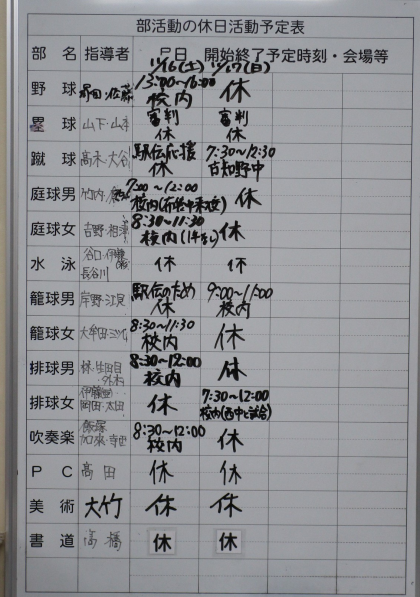 部活動の休日活動予定表
部 名 指導者 月日 開始終了予定時刻・会場等
11/16(土) 11/17(日)
野 球 佐藤 13:00~16:00 校内 休
塁 球 山下・山本 審判 休 審判 休
蹴 球 高木・大谷 駅伝応援 休 7:30~12:30 古知野中
庭球男 竹内 7:00~12:00 校内 休
庭球女 吉野・相澤 8:30~11:30 校内(1年なし) 休
水 泳 谷口・伊藤 長谷川 休 休
籠球男 岸野・江良 駅伝のため 休 9:00~11:00 校内
籠球女 大牟田・三ツ 8:30~11:30 校内 休
排球男 林・生田目 8:30~12:00 校内 休
排球女 岡田・太田 休 7:30~12:00 校内(西中と試合)
吹奏楽 飯塚 加来・寺西 8:30~12:00 校内 休
P C 高田 休 休
美 術 大竹 休 休
書 道 高橋 休 休